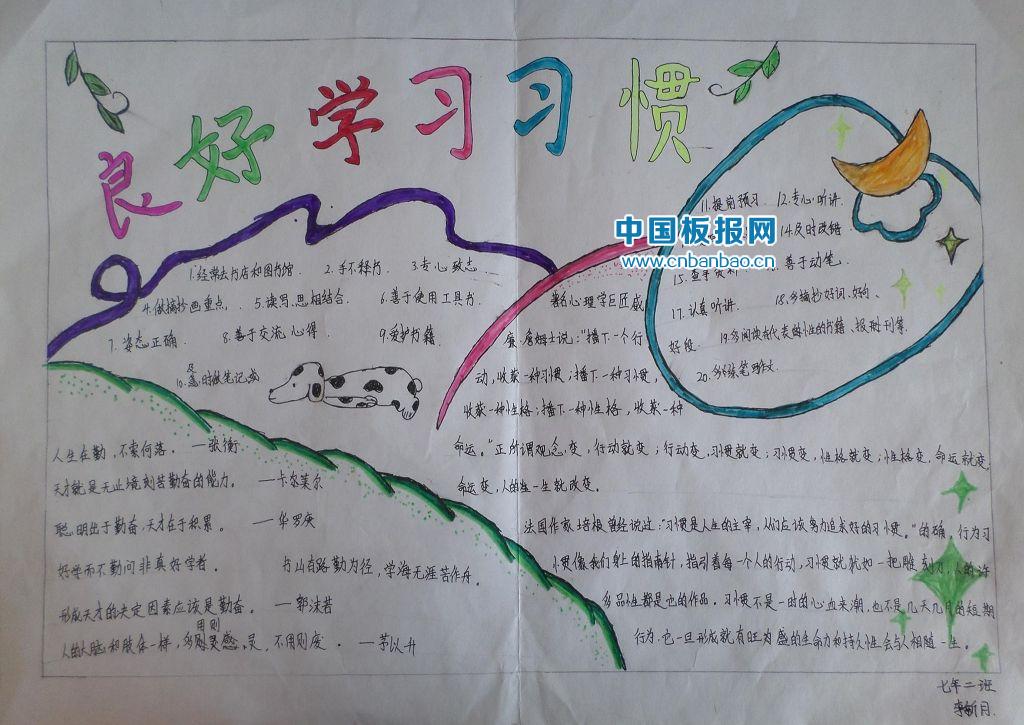 良好学习习惯
1.经常去书店和图书馆. 2.手不释书. 3.专心致志.
4.做摘抄画重点. 5.读写思相结合. 6.善于使用工具书.
7.姿态正确. 8.善于交流心得 9.爱护书籍
10.及时做笔记.
11.提前预习. 12.专心听讲.
14.及时改错.
善于动笔.
17.认真听讲. 18.多摘抄好词、好句、
好段. 19.多阅读有代表性的书籍、报刊等.
20.多练笔写作文.
中国板报网
www.cnbanbao.cn
著名心理学巨匠威
廉.詹姆士说:"播下一个行
动,收获一种习惯;播下一种习惯,
收获一种性格;播下一种性格,收获一种
命运。"正所谓观念变,行动就变;行动变,习惯就变;习惯变,性格就变;性格变,命运就变,
命运变,人的生一生就改变。
法国作家培根曾经说过:"习惯是人生的主宰,人们应该努力追求好的习惯。"的确,行为习
惯像我们身上的指南针,指引着每一个人的行动,习惯就犹如一把雕刻刀,人的许
多品性都是它的作品。习惯不是一时的心血来潮,也不是几天几月的短期
行为.它一旦形成就有旺盛的生命力和持久性会与人相随一生。
人生在勤,不索何落。—张衡
天才就是无止境刻苦勤奋的能力。—卡尔莱尔
聪明出于勤奋,天才在于积累。—华罗庚
好学而不勤问非真好学者。 书山有路勤为径,学海无涯苦作舟。
形成天才的决定因素应该是勤奋。—郭沫若
人的大脑和肢体一样,多用则灵,不用则废。—茅以升
七年二班
李新月.